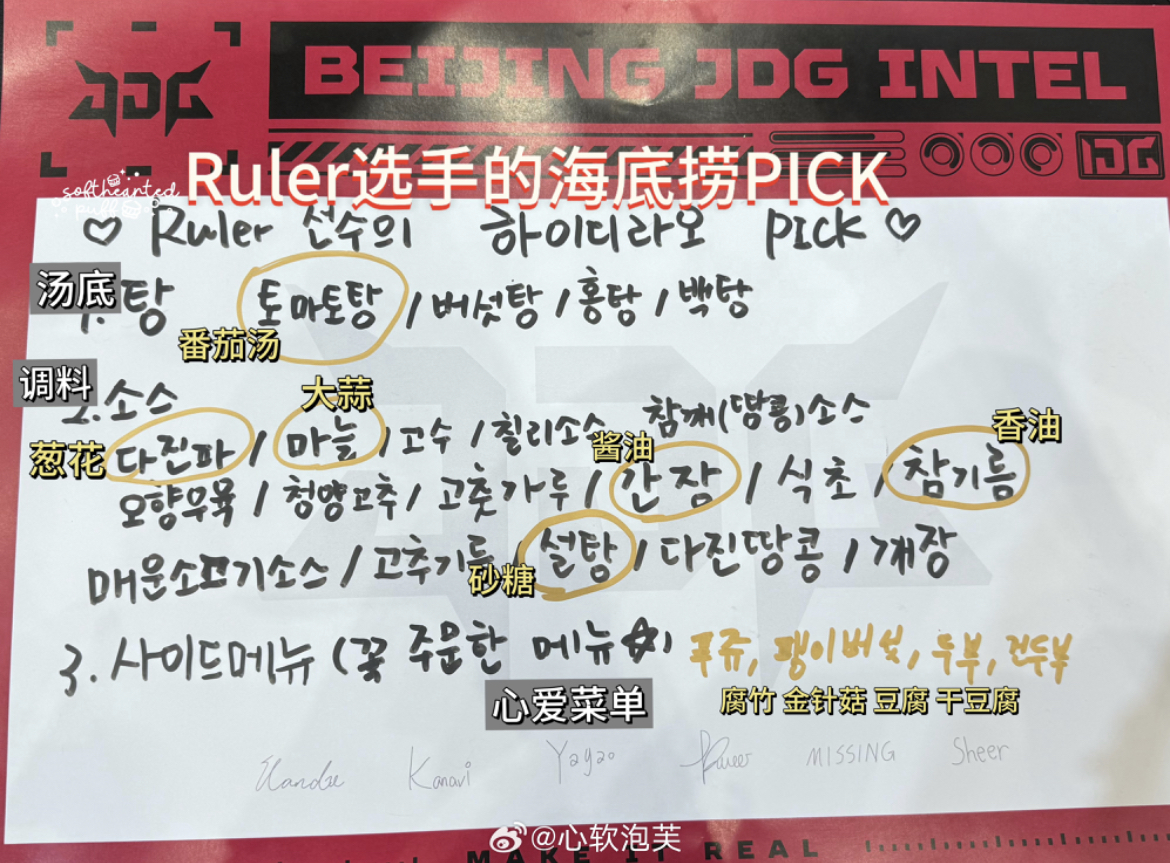 JDG
BEIJING JDG INTEL
JDG
Ruler选手的海底捞PICK
softhearted
puff
♡ Ruler 선수의 하이디라오 PICK ♡
汤底
1. 탕 토마토탕 / 버섯탕 / 홍탕 / 백탕
番茄汤
调料
2. 소스
大蒜
葱花
다진파 / 마늘 / 고수 / 칠리소스 참깨(땅콩)소스
酱油
香油
오향우육 / 청양고추 / 고춧가루 / 간장 / 식초 / 참기름
매운소고기소스 / 고추기름 / 설탕 / 다진땅콩 / 게장
砂糖
3. 사이드메뉴 (꽃 주문한 메뉴☆) 푸쥬, 팽이버섯, 두부, 건두부
心爱菜单
腐竹 金针菇 豆腐 干豆腐
Kanavi Yagao Ruler MISSING Sheer
@心软泡芙
MAKE IT REAL